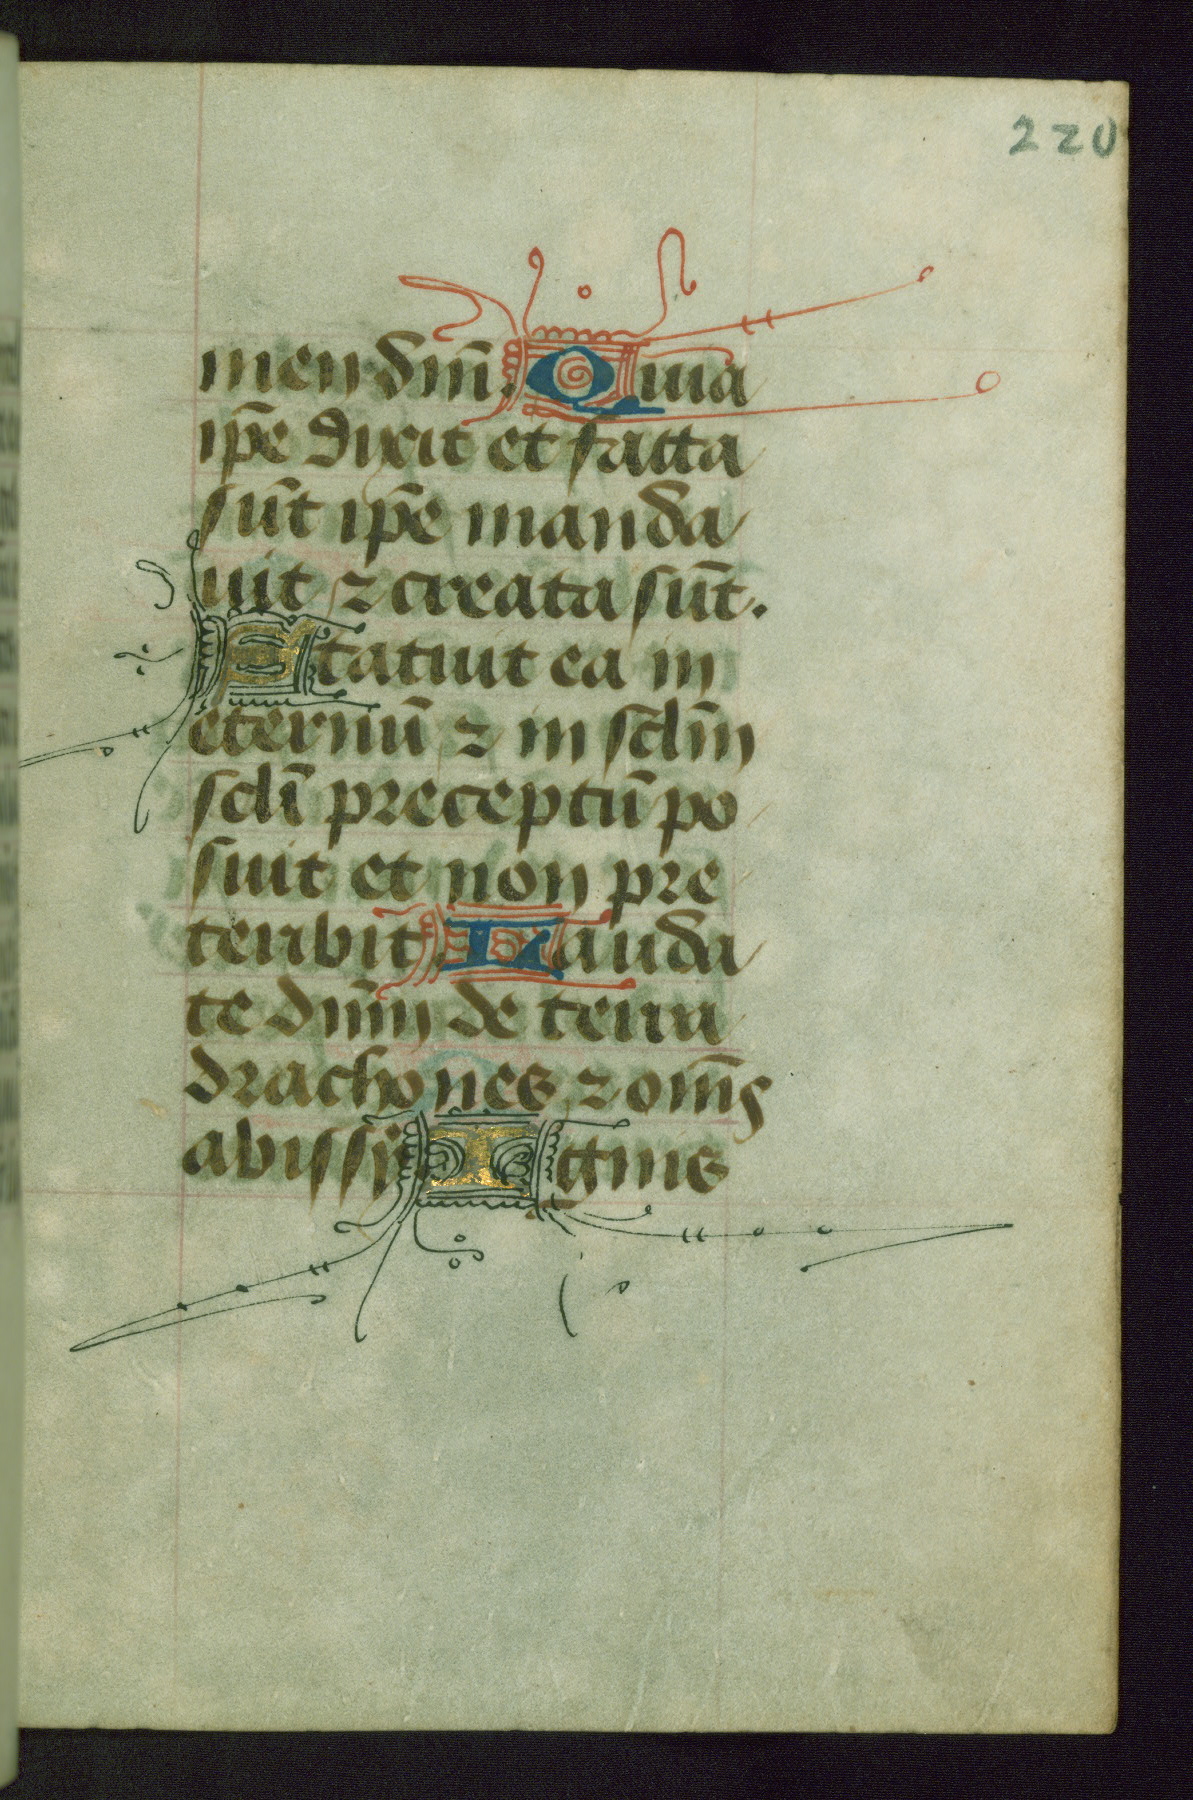 220
men dm̄. Quia
ip̄e dixit et facta
sūt ip̄e manda
uit ⁊ creata sūt.
Statuit ea in
eternū ⁊ in scl̄m
scl̄i preceptū po
suit et non pre
teribit Lauda
te dn̄m de terra
drachones ⁊ om̄s
abissi Ignis